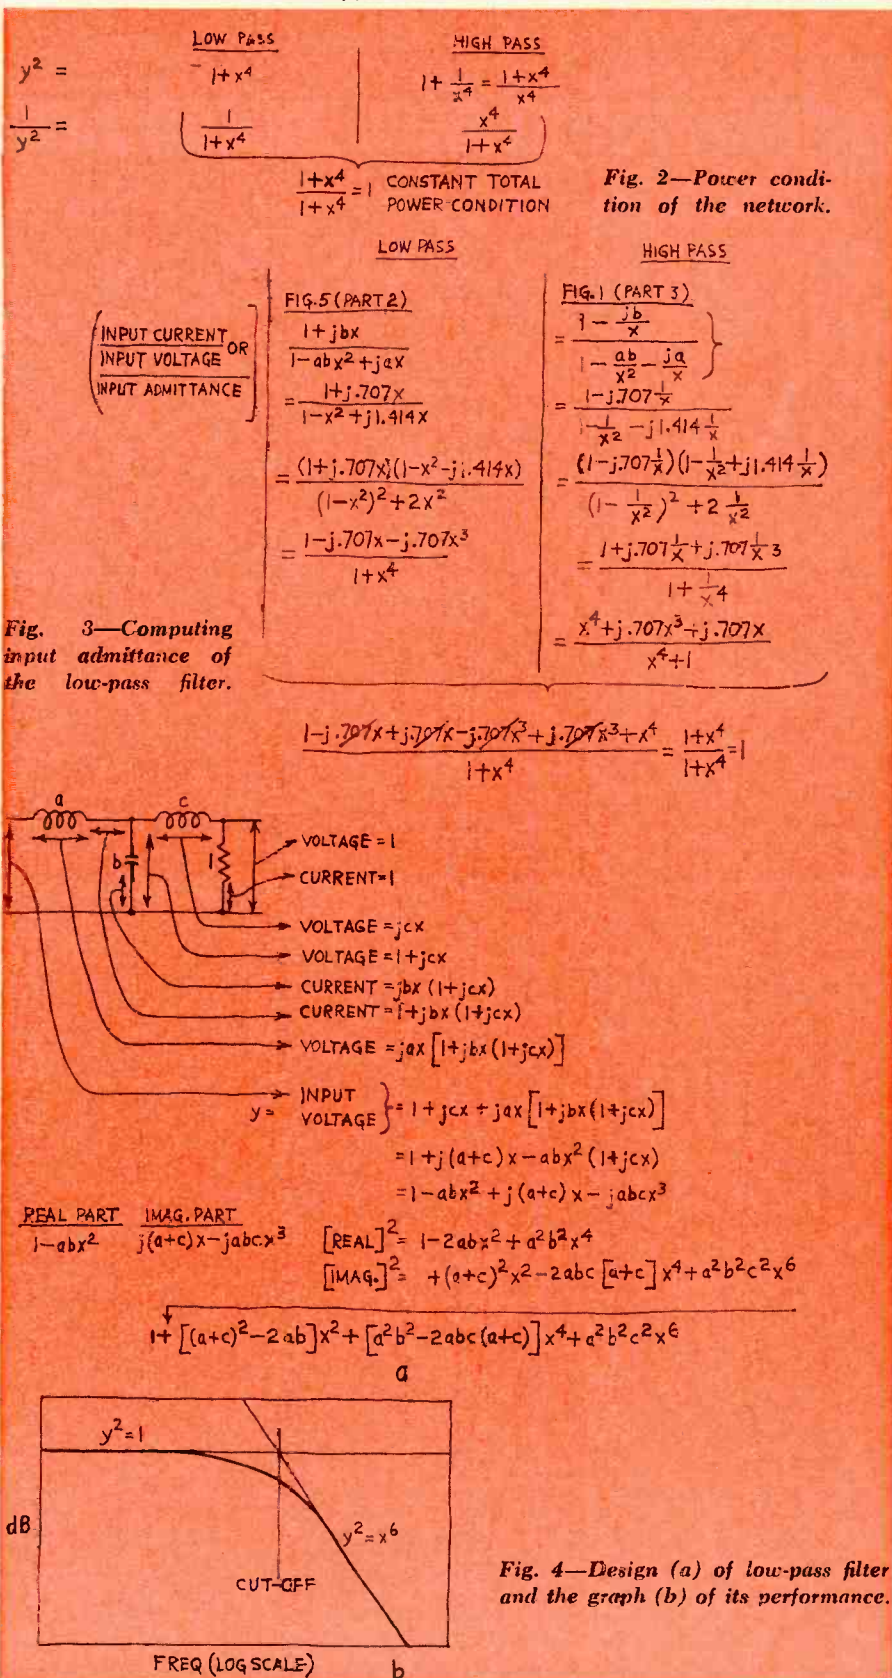 LOW PASS HIGH PASS
y² = 1+x⁴ 1 + 1/x⁴ = (1+x⁴)/x⁴
1/y² = 1/(1+x⁴) x⁴/(1+x⁴)
(1+x⁴)/(1+x⁴) = 1 CONSTANT TOTAL
POWER CONDITION
Fig. 2—Power condi-
tion of the network.
LOW PASS HIGH PASS
(INPUT CURRENT/INPUT VOLTAGE OR
INPUT ADMITTANCE)
FIG. 5 (PART 2)
(1+jbx)/(1-abx²+jax)
= (1+j.707x)/(1-x²+j1.414x)
= (1+j.707x)(1-x²-j1.414x)/((1-x²)²+2x²)
= (1-j.707x-j.707x³)/(1+x⁴)
FIG. 1 (PART 3)
= (1 - jb/x)/(1 - ab/x² - ja/x)
= (1-j.707 1/x)/(1 - 1/x² - j1.414 1/x)
= (1-j.707 1/x)(1 - 1/x² + j1.414 1/x)/((1 - 1/x²)² + 2 1/x²)
= (1+j.707 1/x + j.707 1/x 3)/(1 + 1/x 4)
= (x⁴+j.707x³+j.707x)/(x⁴+1)
Fig. 3—Computing
input admittance of
the low-pass filter.
(1-j.707x+j.707x-j.707x³+j.707x³+x⁴)/(1+x⁴) = (1+x⁴)/(1+x⁴) = 1
a c
b 1
VOLTAGE = 1
CURRENT = 1
VOLTAGE = jcx
VOLTAGE = 1+jcx
CURRENT = jbx (1+jcx)
CURRENT = 1+jbx (1+jcx)
VOLTAGE = jax [1+jbx (1+jcx)]
y = INPUT
VOLTAGE } = 1 + jcx + jax [1+jbx(1+jcx)]
= 1+j(a+c)x-abx² (1+jcx)
= 1-abx² + j(a+c)x - jabcx³
REAL PART IMAG. PART
1-abx² j(a+c)x-jabcx³
[REAL]² = 1-2abx² + a²b²x⁴
[IMAG.]² = +(a+c)²x²-2abc [a+c] x⁴+a²b²c²x⁶
1+ [(a+c)²-2ab]x²+ [a²b²-2abc(a+c)]x⁴+a²b²c²x⁶
a
y²=1
dB
y²=x⁶
CUT-OFF
FREQ (LOG SCALE)
b
Fig. 4—Design (a) of low-pass filter
and the graph (b) of its performance.